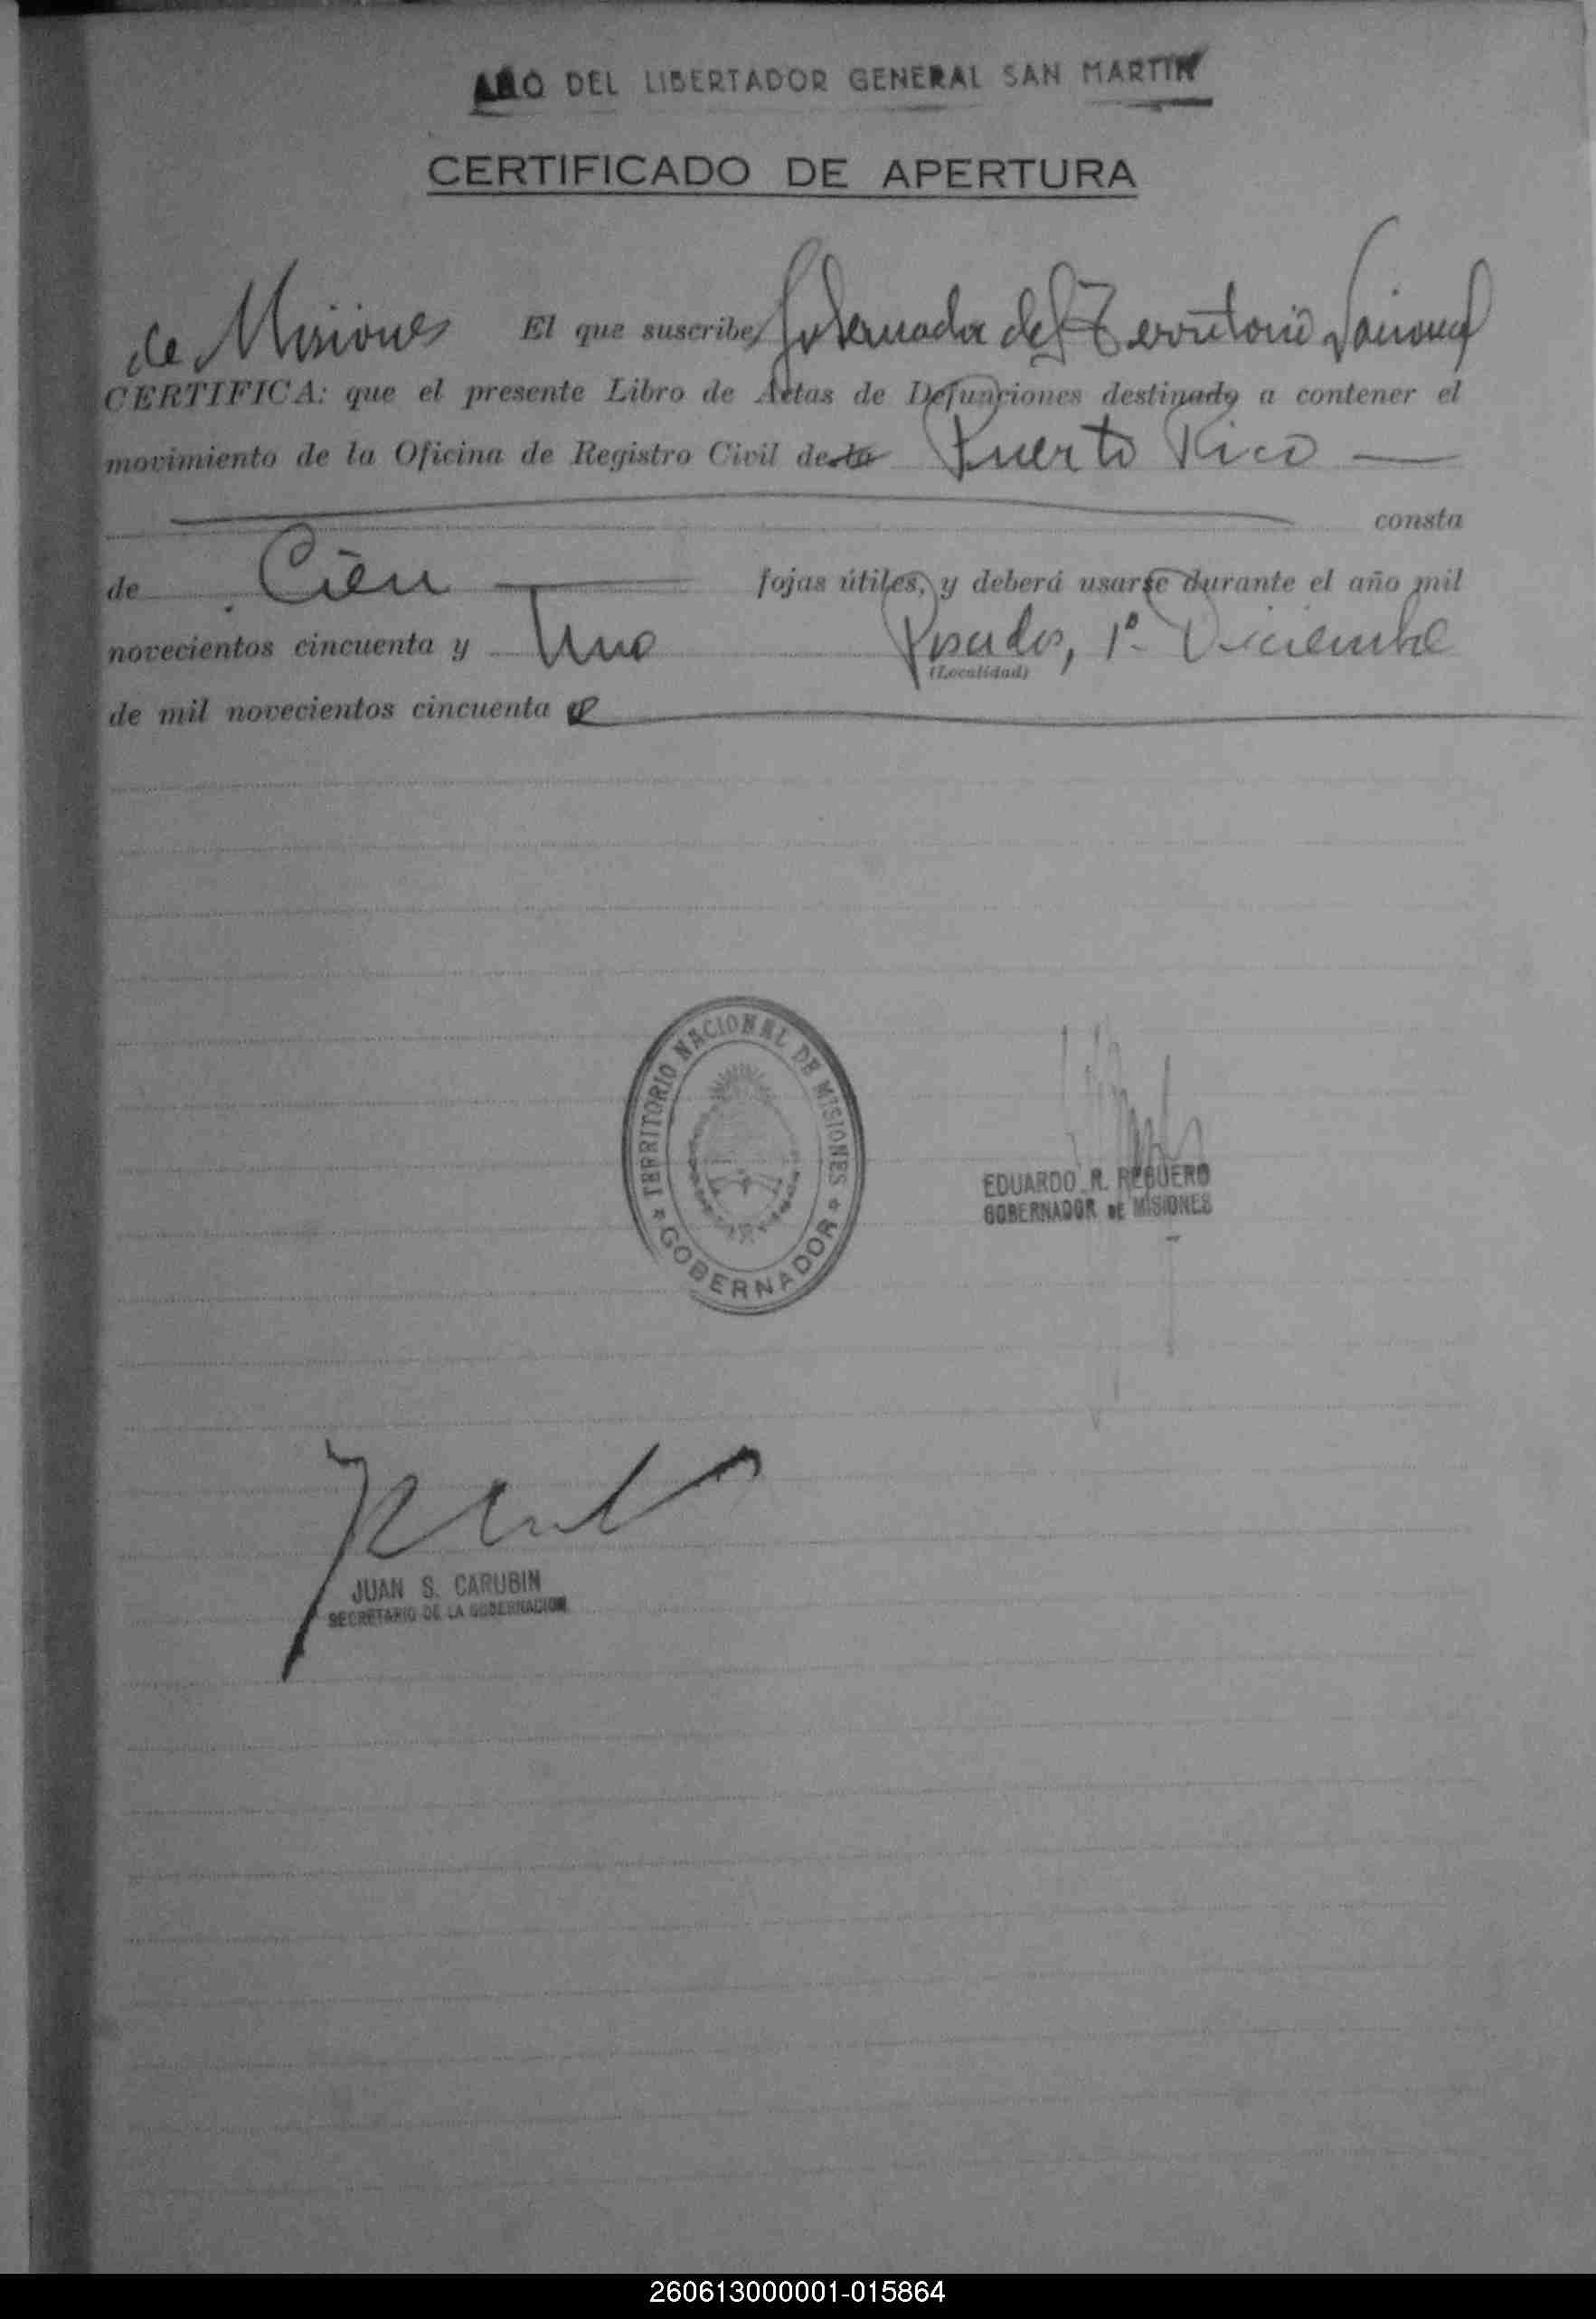 AÑO DEL LIBERTADOR GENERAL SAN MARTIN
CERTIFICADO DE APERTURA
El que suscribe, Gobernador del Territorio Nacional
de Misiones
CERTIFICA: que el presente Libro de Actas de Defunciones destinado a contener el
movimiento de la Oficina de Registro Civil de la Puerto Rico
consta
de Cien fojas útiles, y deberá usarse durante el año mil
novecientos cincuenta y Uno Posadas, 1º Diciembre
(Localidad)
de mil novecientos cincuenta
TERRITORIO NACIONAL DE MISIONES
GOBERNADOR
EDUARDO R. REBUERO
GOBERNADOR DE MISIONES
JUAN S. CARUBIN
SECRETARIO DE LA GOBERNACION
260613000001-015864